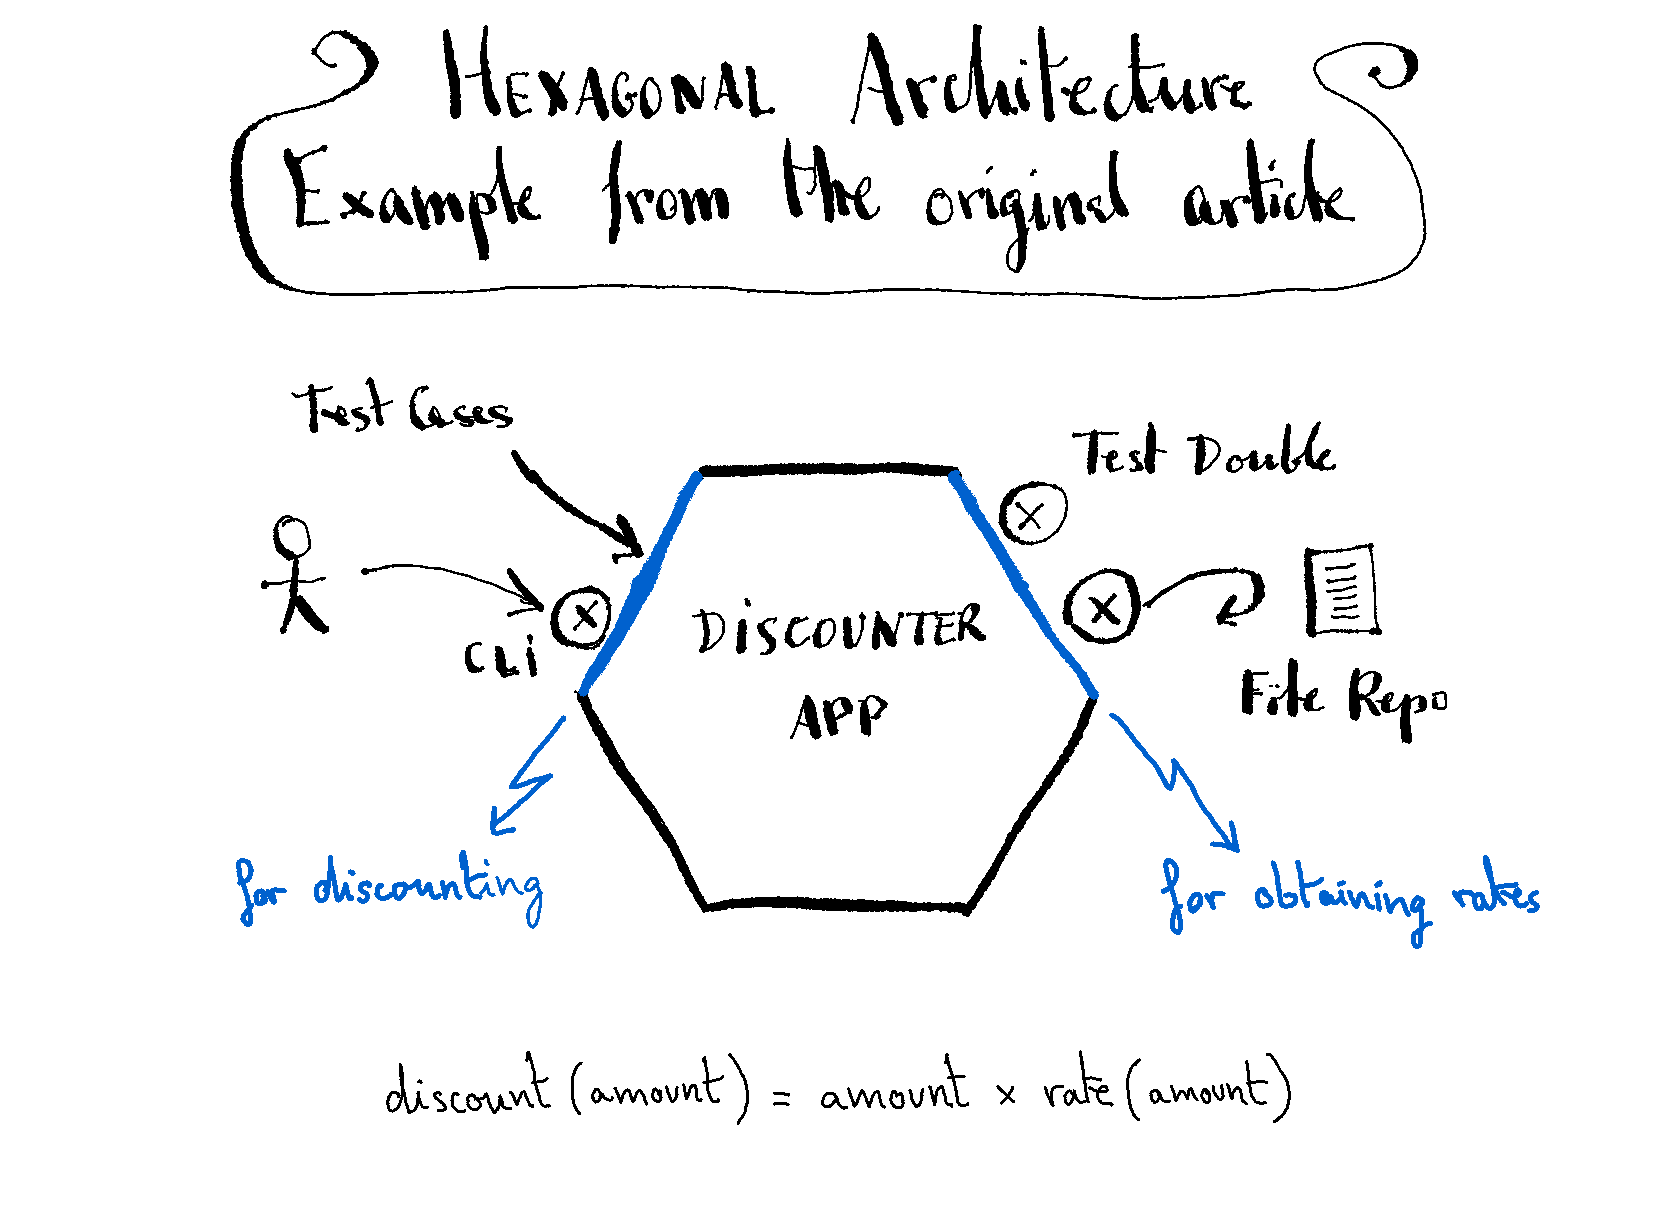 HEXAGONAL Architecture
Example from the original article
Test Cases
Test Double
X
X
X
CLi
DiSCOUNTER
APP
File Repo
for discounting
for obtaining rates
discount (amount) = amount x rate (amount)